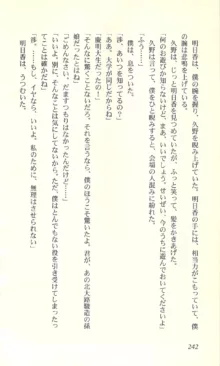 明日香は、僕の腕を握り、久野を睨み上げていた。明日香の手には、相当力がこもっていて、僕
の腕は悲鳴を上げている。
久野は、じっと明日香を見つめていたが、ふっと笑って、髪をかきあげた。
「何のお遊びか知りませんが、ま、いいでしょう。せいぜい、今のうちに遊んでおいてくださいよ」
久野は、僕をひとにらみすると、会場の人混みに紛れた。
「ふう……」
僕は、息をついた。
「渉、あいつを知ってるの？」
「まあ、大学が同じだからね」
「慶明大生だったの……」
「そんなに驚くことないだろう。それを言うなら、僕のほうこそ驚いたよ。君が、あの北大路駿造の孫
娘だったとはね」
「ごめんなさい。だますつもりはなかったんだけど……」
「まあ、そんなことは気にしてないから。ただ、僕はとんでもない役を引き受けてしまったっ
てことは確かだね」
「渉、……もし、イヤなら、いいよ。私のために、無理はさせられない」
明日香は、うつむいた。
242